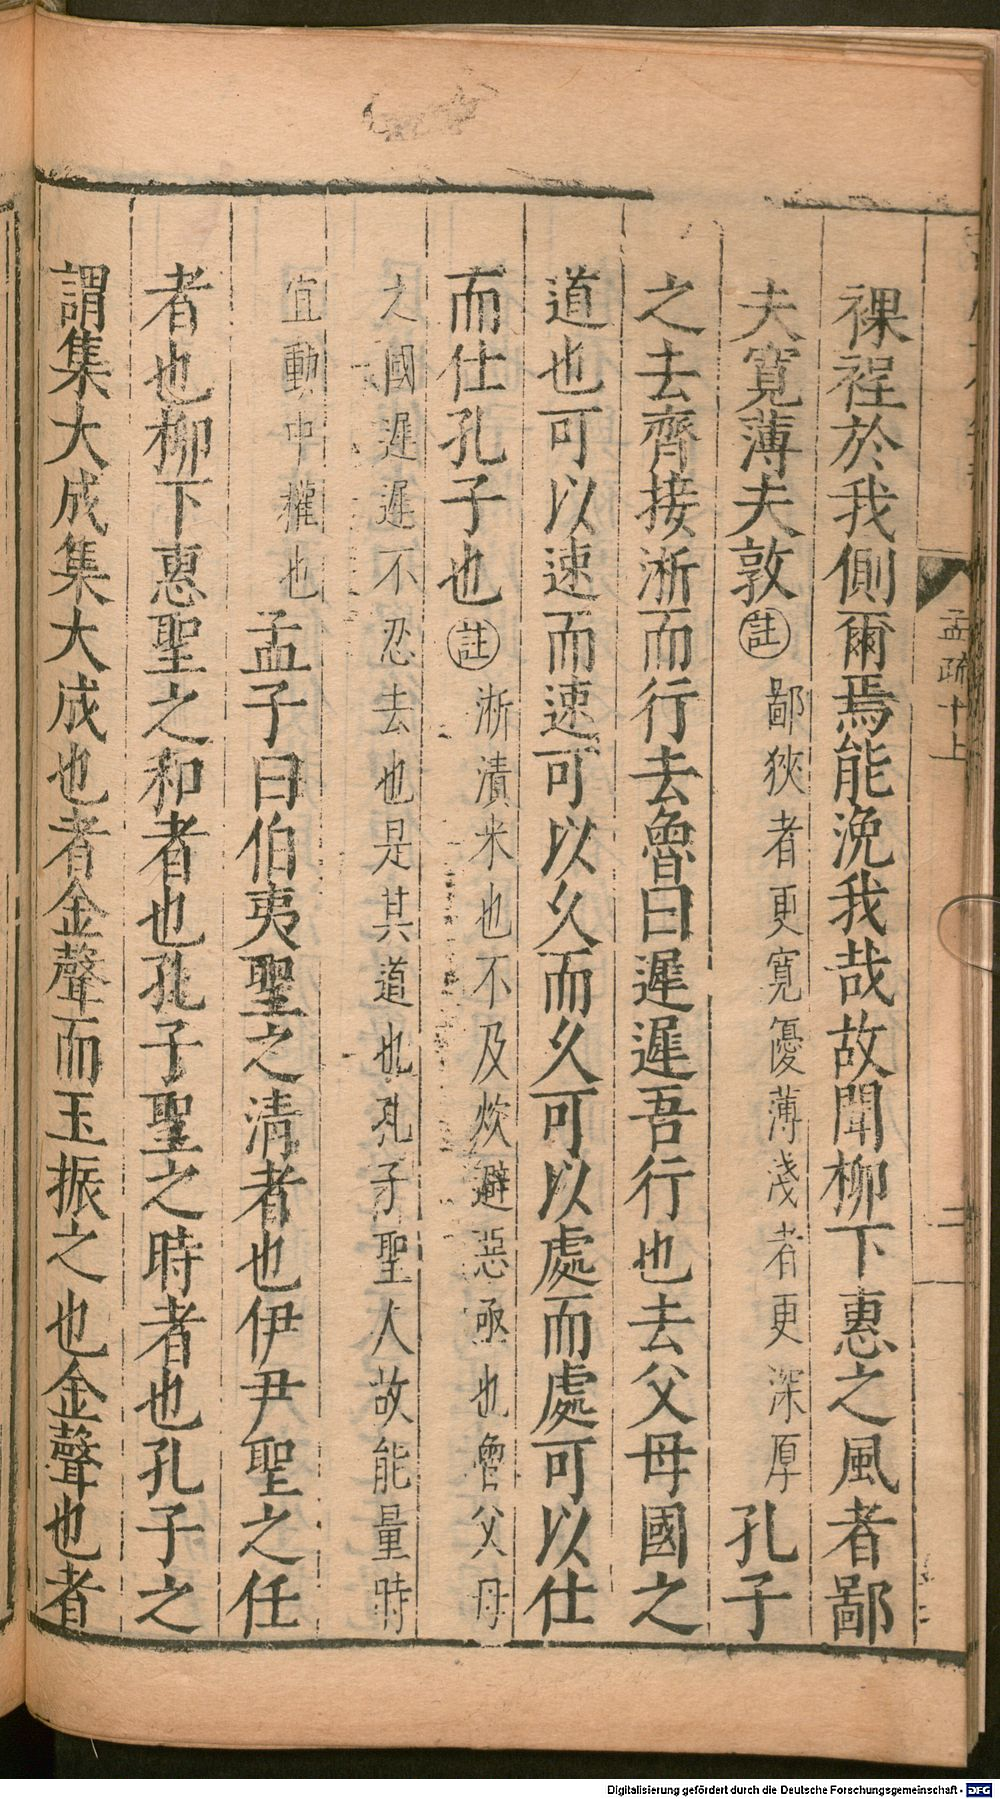 孟疏十上
二
裸裎於我側爾焉能浼我哉故聞柳下惠之風者鄙
夫寬薄夫敦註鄙狹者更寬優薄淺者更深厚孔子
之去齊接淅而行去魯曰遲遲吾行也去父母國之
道也可以速而速可以久而久可以處而處可以仕
而仕孔子也註淅漬米也不及炊避惡亟也魯父母
之國遲遲不忍去也是其道也孔子聖人故能量時
宜動中權也孟子曰伯夷聖之清者也伊尹聖之任
者也柳下惠聖之和者也孔子聖之時者也孔子之
謂集大成集大成也者金聲而玉振之也金聲也者
Digitalisierung gefördert durch die Deutsche Forschungsgemeinschaft - DFG